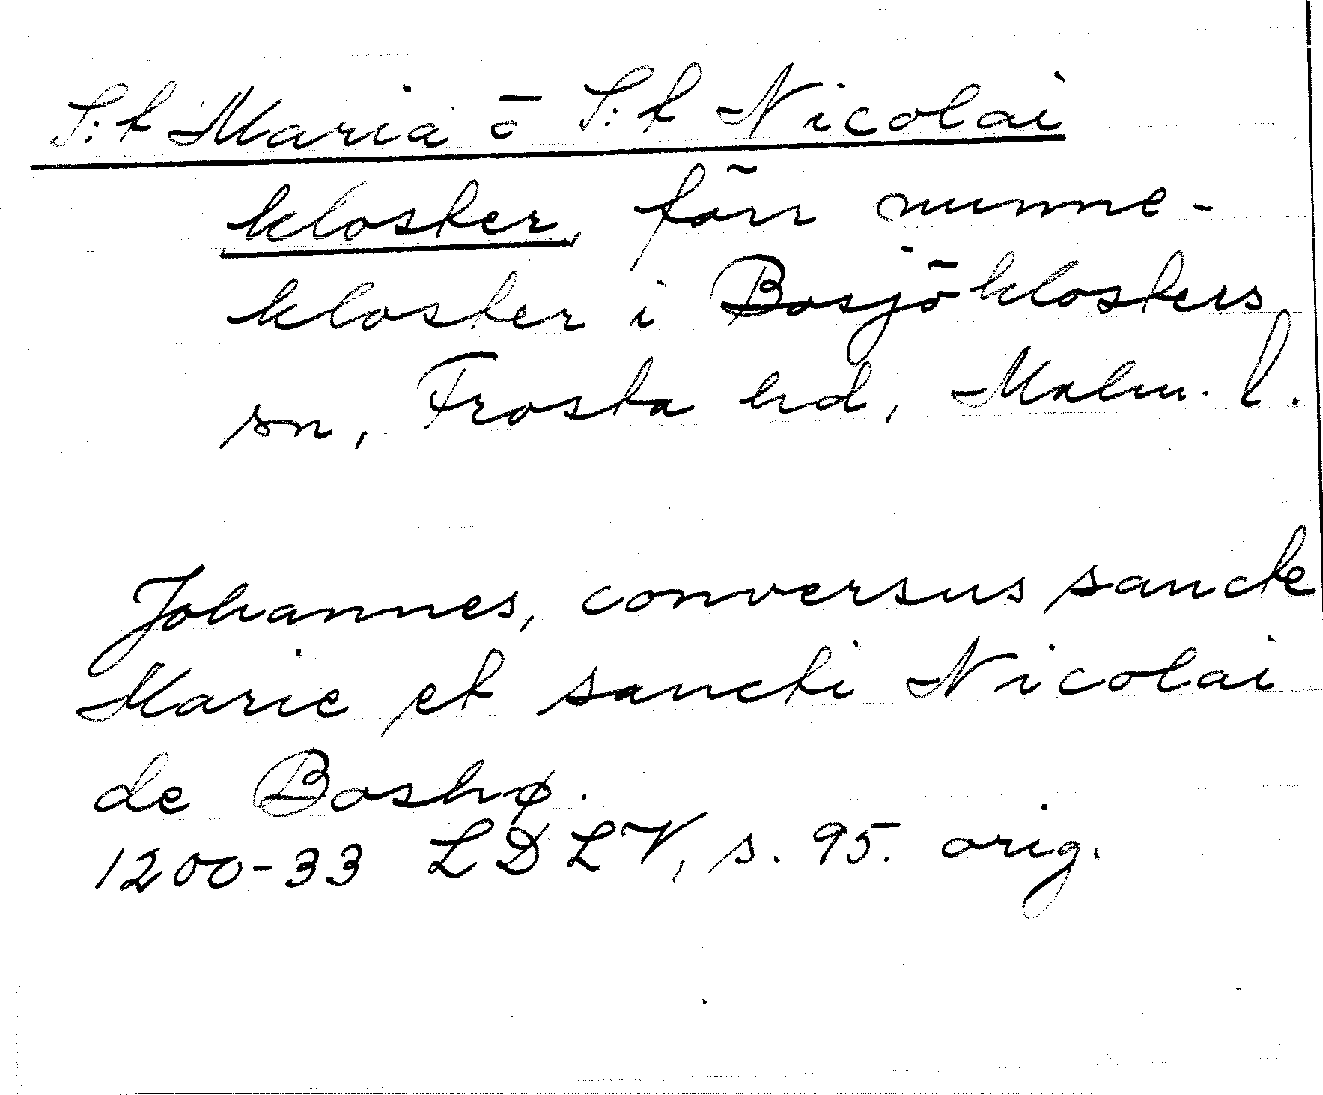 S:t Maria o S:t Nicolai
kloster, förr nunne-
kloster i Bosjöklosters
sn, Frosta hd, Malm. l.
Johannes, conversus sancte
Marie et sancti Nicolai
de Boshø.
1200-33 LDLV, s. 95. orig.